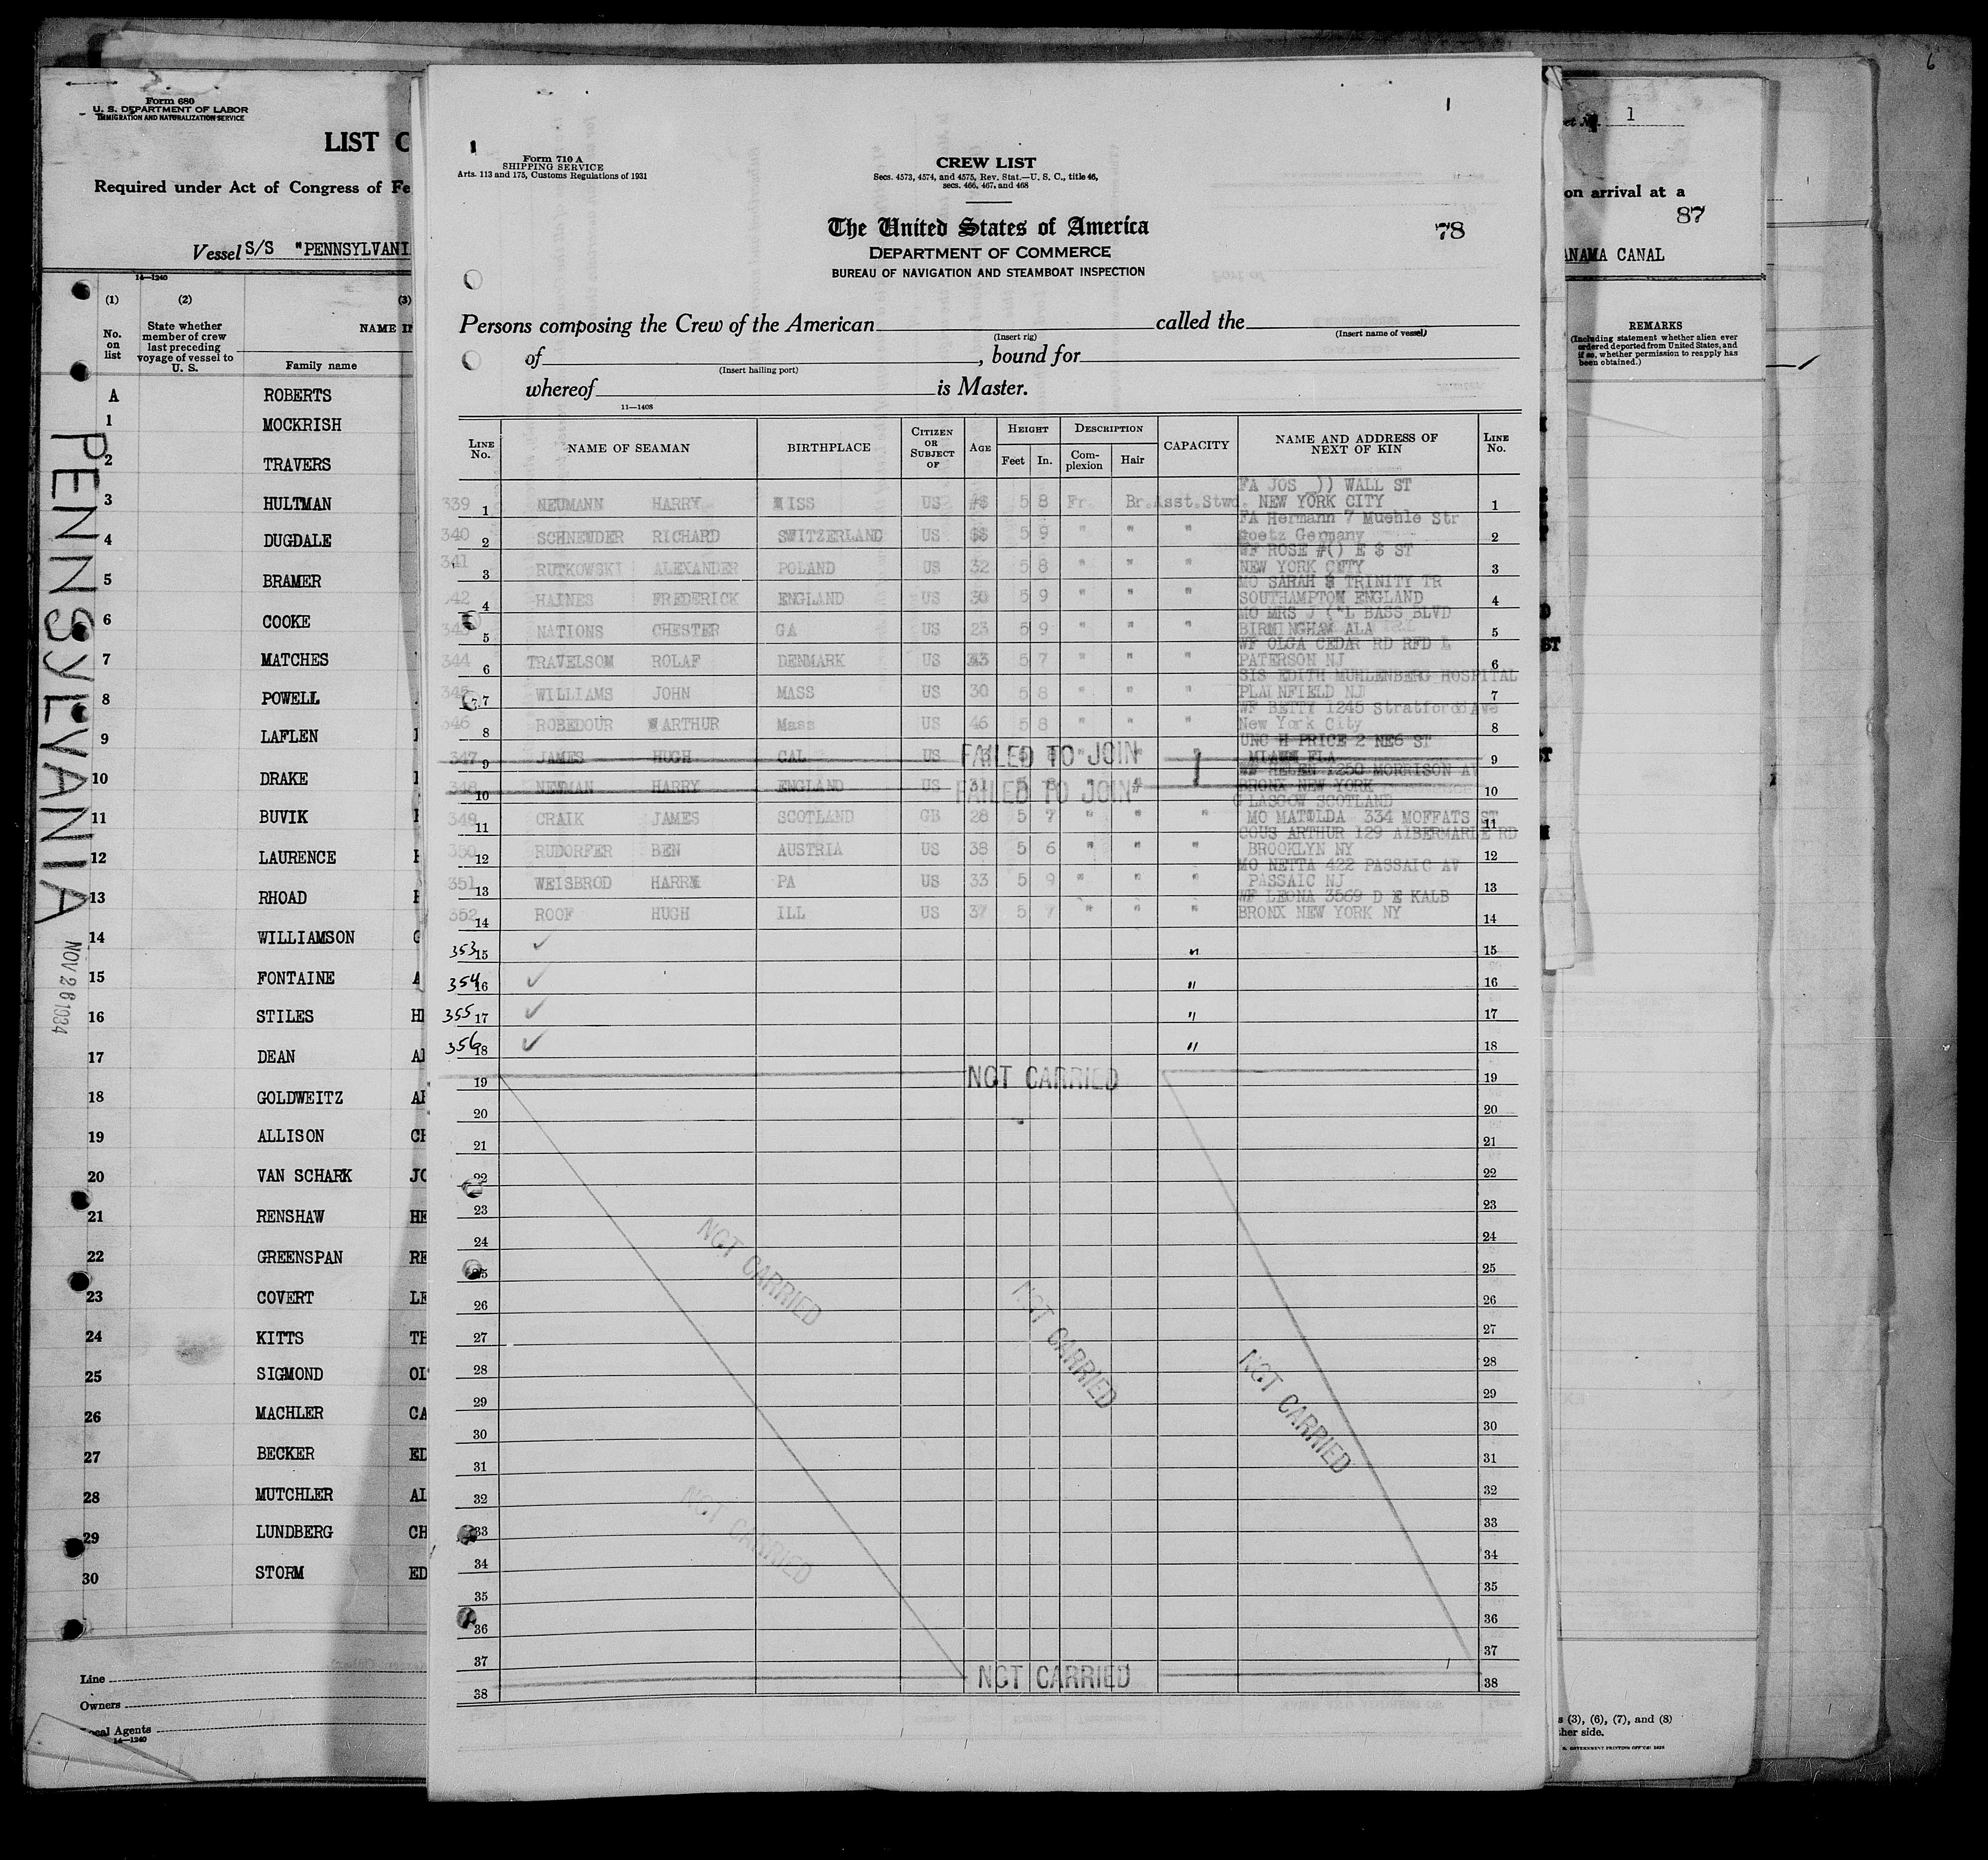 6
Form 680
U. S. DEPARTMENT OF LABOR
IMMIGRATION AND NATURALIZATION SERVICE
LIST
Required under Act of Congress of Fe
Vessel S/S "PENNSYLVANI
14—1240
(1) (2) (3)
No. on list
State whether member of crew last preceding voyage of vessel to U. S.
NAME IN
Family name
A ROBERTS
1 MOCKRISH
2 TRAVERS
3 HULTMAN
4 DUGDALE
5 BRAMER
6 COOKE
7 MATCHES
8 POWELL
9 LAFLEN
10 DRAKE
11 BUVIK
12 LAURENCE
13 RHOAD
14 WILLIAMSON
15 FONTAINE A
16 STILES
17 DEAN
18 GOLDWEITZ
19 ALLISON
20 VAN SCHARK JO
21 RENSHAW HE
22 GREENSPAN RE
23 COVERT LE
24 KITTS TH
25 SIGMOND
26 MACHLER CA
27 BECKER ED
28 MUTCHLER AL
29 LUNDBERG CH
30 STORM ED
Line
Owners
Local Agents
14—1240
PENNSYLVANIA
NOV 26 1934
1
1
Form 710 A
SHIPPING SERVICE
Arts. 113 and 175, Customs Regulations of 1931
CREW LIST
Secs. 4573, 4574, and 4575, Rev. Stat.—U. S. C., title 46,
secs. 466, 467, and 468
The United States of America
78
DEPARTMENT OF COMMERCE
BUREAU OF NAVIGATION AND STEAMBOAT INSPECTION
Persons composing the Crew of the American called the
(Insert rig) (Insert name of vessel)
of , bound for
(Insert hailing port)
whereof is Master.
11—1408
LINE No.
NAME OF SEAMAN
BIRTHPLACE
CITIZEN OR SUBJECT OF
AGE
HEIGHT
Feet In.
DESCRIPTION
Complexion Hair
CAPACITY
NAME AND ADDRESS OF NEXT OF KIN
LINE No.
FA JOS )) WALL ST
339 1 NEUMANN HARRY WISS US #$ 5 8 Fr. Br. Asst.Stwd. NEW YORK CITY 1
FA Hermann 7 Muehle Str
340 2 SCHNEWDER RICHARD SWITZERLAND US $$ 5 9 " " " Goetz Germany 2
WF ROSE #() E $ ST
341 3 RUTKOWSKI ALEXANDER POLAND US 32 5 8 " " " NEW YORK CITY 3
MO SARAH $ TRINITY TR
342 4 HAINES FREDERICK ENGLAND US 30 5 9 " " " SOUTHAMPTON ENGLAND 4
MO MRS J BASS BLVD
343 5 NATIONS CHESTER GA US 23 5 9 " " " BIRMINGHAM ALA 5
WF OLGA CEDAR RD RFD
344 6 TRAVELSOM ROLAF DENMARK US 43 5 7 " " " PATERSON NJ 6
SIS EDITH MUHLENBERG HOSPITAL
345 7 WILLIAMS JOHN MASS US 30 5 8 " " " PLAINFIELD NJ 7
WF BETTY 1245 Stratford Ave
346 8 ROBEDOUR ARTHUR Mass US 46 5 8 " " " New York City 8
UNC H PRICE 2 NE6 ST
347 9 JAMES HUGH CAL US FAILED TO JOIN MIAMI FLA 9
WF HELEN 1250 MORRISON AV
348 10 NEWMAN HARRY ENGLAND US 31 FAILED TO JOIN BRONX NEW YORK 10
GLASGOW SCOTLAND
349 11 CRAIK JAMES SCOTLAND GB 28 5 7 " " " MO MATILDA 334 MOFFATS ST 11
COUS ARTHUR 129 ALBERMARLE RD
350 12 RUDORFER BEN AUSTRIA US 38 5 6 " " " BROOKLYN NY 12
MO NETTA 422 PASSAIC AV
351 13 WEISBROD HARRY PA US 33 5 9 " " " PASSAIC NJ 13
WF LEONA 3569 D E KALB
352 14 ROOF HUGH ILL US 37 5 7 " " " BRONX NEW YORK NY 14
353 15 ✓ " 15
354 16 ✓ " 16
355 17 ✓ " 17
356 18 ✓ " 18
19 NOT CARRIED 19
20 20
21 21
22 22
23 23
24 24
25 25
26 26
27 27
28 28
29 29
30 30
31 31
32 32
33 33
34 34
35 35
36 36
37 37
38 NOT CARRIED 38
NOT CARRIED
NOT CARRIED
NOT CARRIED
NOT CARRIED
1
on arrival at a
87
ANAMA CANAL
REMARKS
(Including statement whether alien ever ordered deported from United States, and if so, whether permission to reapply has been obtained.)
s (3), (6), (7), and (8)
her side.